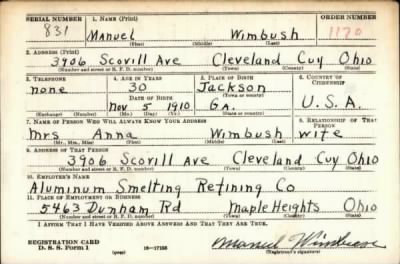 SERIAL NUMBER 1. NAME (Print) ORDER NUMBER
831 Manuel Wimbush 1170
(First) (Middle) (Last)
2. ADDRESS (Print)
3906 Scovill Ave Cleveland Cuy Ohio
(Number and street or R. F. D. number) (Town) (County) (State)
3. TELEPHONE 4. AGE IN YEARS 5. PLACE OF BIRTH 6. COUNTRY OF CITIZENSHIP
none 30 Jackson
DATE OF BIRTH (Town or county)
Nov 5 1910 GA. U.S.A.
(Exchange) (Number) (Mo.) (Day) (Yr.) (State or country)
7. NAME OF PERSON WHO WILL ALWAYS KNOW YOUR ADDRESS 8. RELATIONSHIP OF THAT PERSON
Mrs Anna Wimbush wife
(Mr., Mrs., Miss) (First) (Middle) (Last)
9. ADDRESS OF THAT PERSON
3906 Scovill Ave Cleveland Cuy Ohio
(Number and street or R. F. D. number) (Town) (County) (State)
10. EMPLOYER'S NAME
Aluminum Smelting Refining Co
11. PLACE OF EMPLOYMENT OR BUSINESS
5463 Dunham Rd Maple Heights Ohio
(Number and street or R. F. D. number) (Town) (County) (State)
I AFFIRM THAT I HAVE VERIFIED ABOVE ANSWERS AND THAT THEY ARE TRUE.
REGISTRATION CARD
D. S. S. Form 1 (over) 16—17105 Manuel Wimbush
(Registrant's signature)